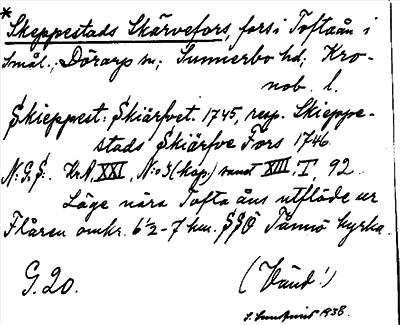 * Skeppestads Skärvefors, fors i Toftaån i
Smål.; Dörarp sn; Sunnerbo hd, Kro-
nob. l.
Skieppest: Skiärfvet. 1745, resp. Skieppe-
stads Skiärfve Fors 1746.
N:G:S: Kr.A. XXI, N:o 3 (kop.) samt XIII, T, 92.
Läge nära Tofta åns utflöde ur
Flåren omkr. 6½-7 km. SSÖ Tånnö kyrka.
G. 20. (Vänd!)
1938.